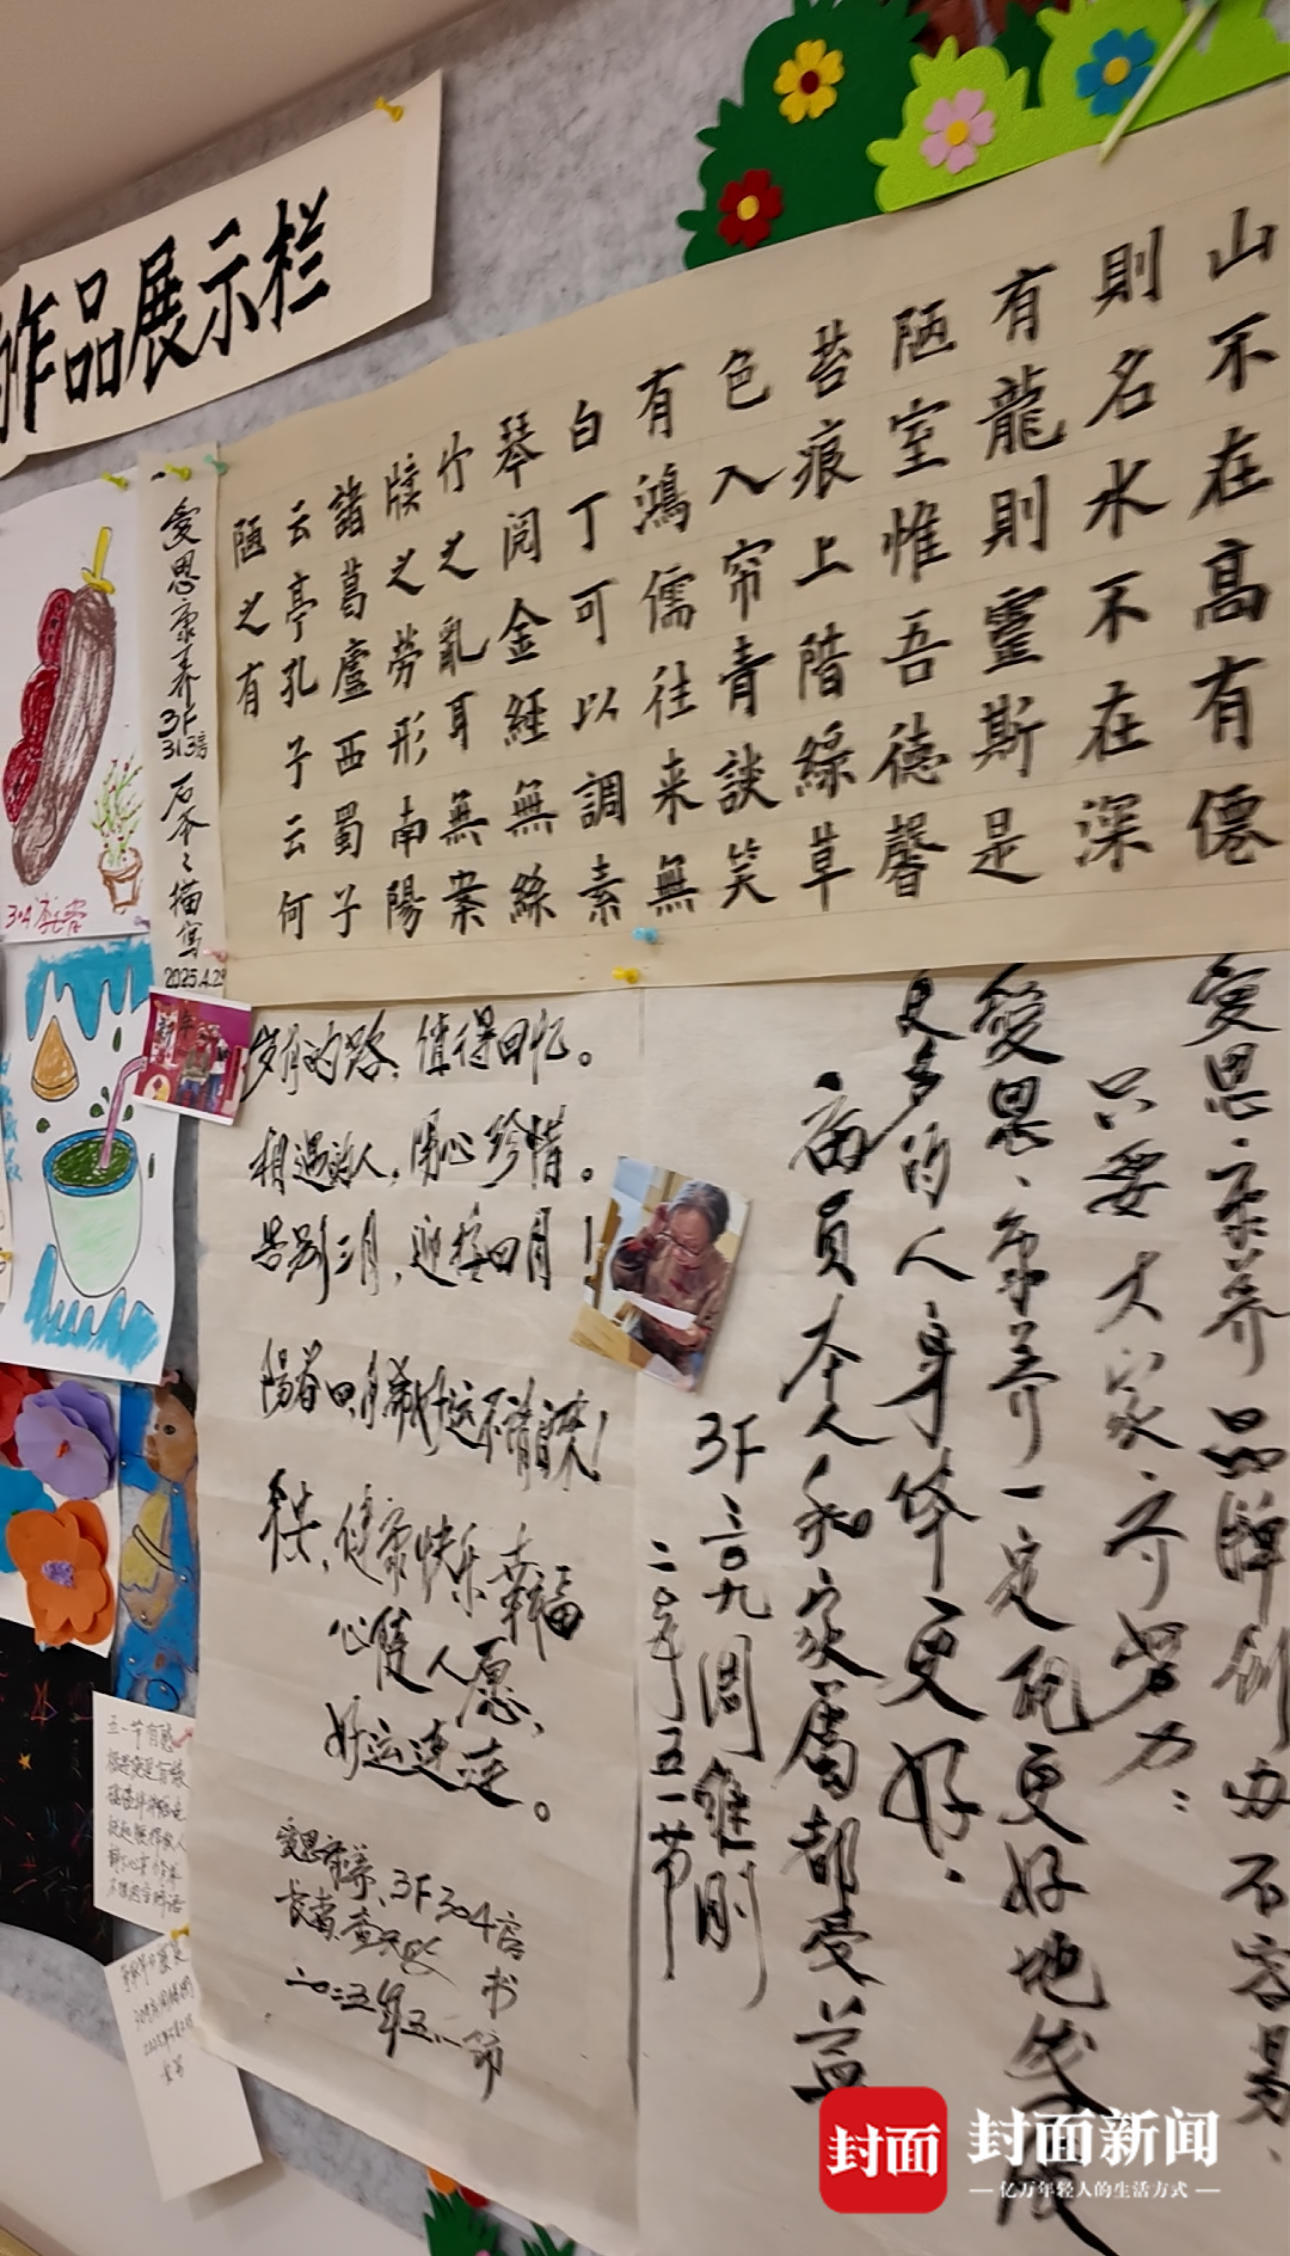 作品展示栏
山不在高有僊
則名水不在深
有龍則靈斯是
陋室惟吾德馨
苔痕上階綠草
色入帘青談笑
有鴻儒往来無
白丁可以調素
琴閲金經無絲
竹之亂耳無案
牍之勞形南陽
諸葛廬西蜀子
云亭孔子云何
陋之有
爱思康养3F
313房
描寫
2025.4.29
304
岁月的路，值得回忆。
相遇的人，用心珍惜。
告别三月，迎接四月！
陽春四月
健康快乐幸福
心随人愿，
好运连连。
爱思康养、3F304房
书
二〇二五年五一節
爱思康养品牌创办不容易、
只要大家齐努力：
爱思、康养一定能更好地发展
更多的人身体更好！
病員本人和家属都受益
3F三〇九周继刚
五一节
五一节有感
封面
封面新闻
亿万年轻人的生活方式